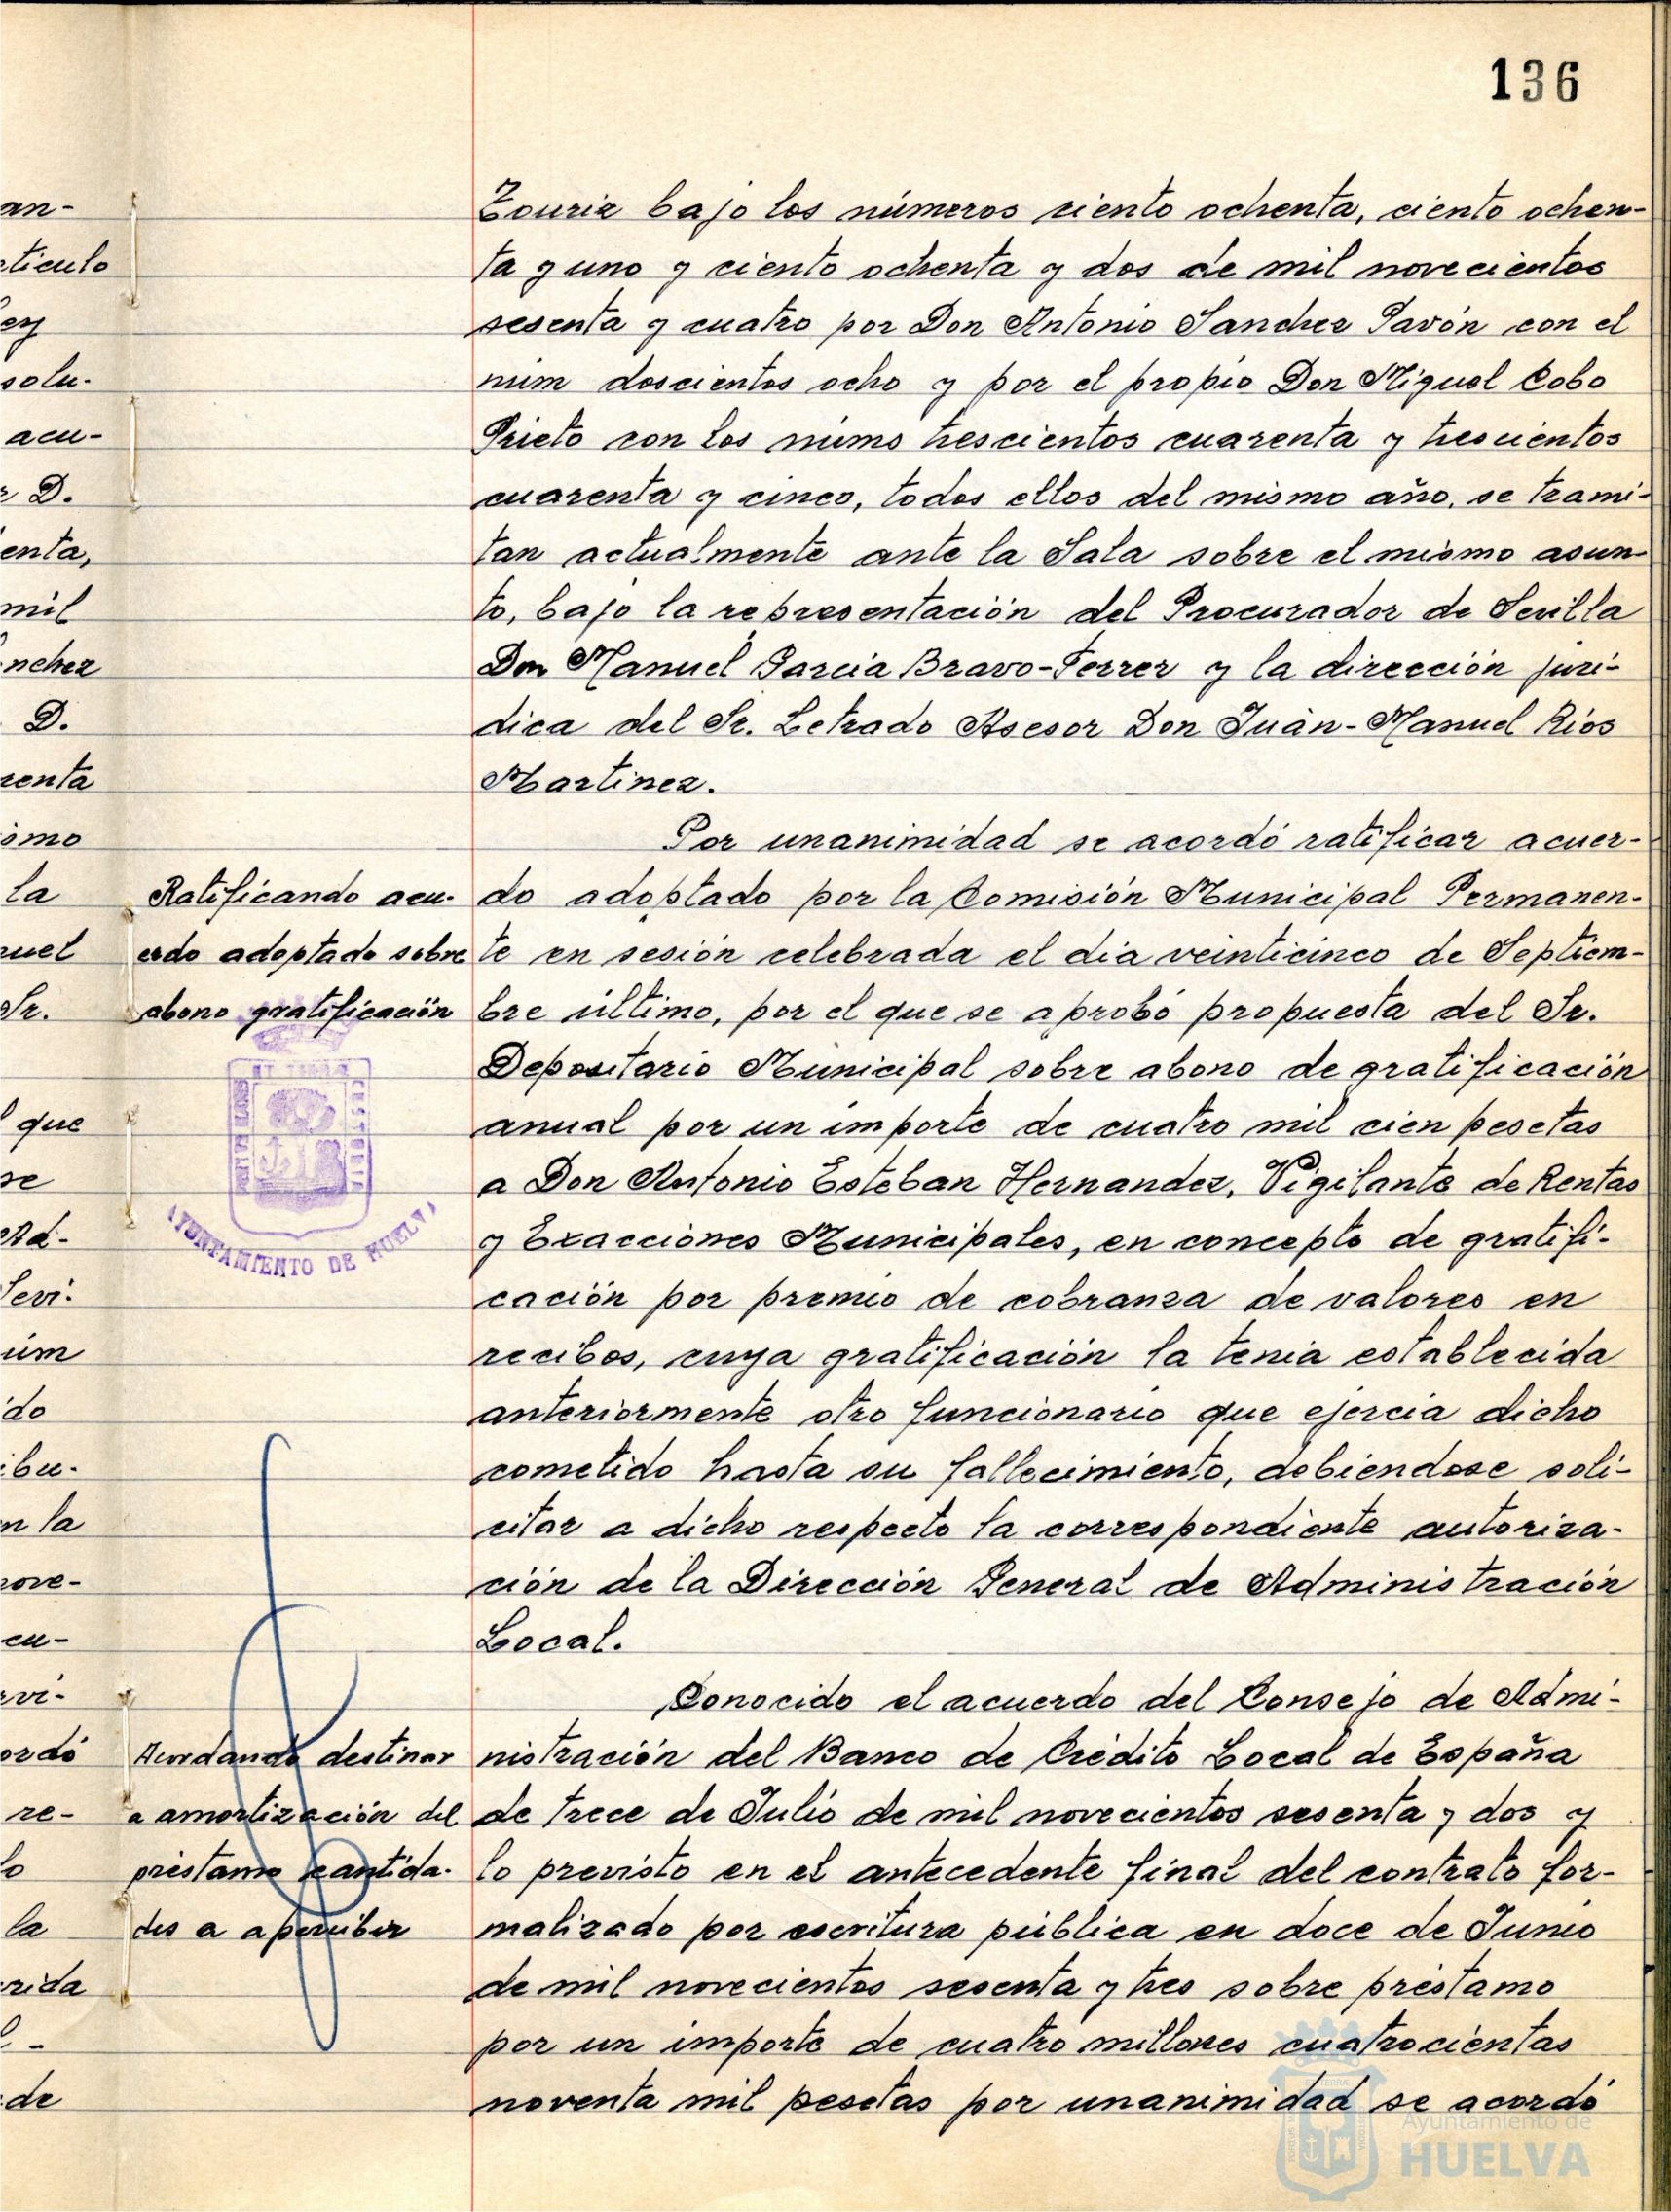 136
an-
tículo
ey
solu-
acu-
D.
enta,
mil
nchez
D.
renta
ismo
la
nuel
Sr.
que
se
Ad-
Sevi-
úm
do
ibu-
n la
nove-
cu-
vi-
ordó
re-
lo
la
rida
de
Touriz bajo los números ciento ochenta, ciento ochen-
ta y uno y ciento ochenta y dos de mil novecientos
sesenta y cuatro por Don Antonio Sanchez Pavón con el
núm doscientos ocho y por el propio Don Miguel Cobo
Prieto con los núms trescientos cuarenta y trescientos
cuarenta y cinco, todos ellos del mismo año, se trami-
tan actualmente ante la Sala sobre el mismo asun-
to, bajo la representación del Procurador de Sevilla
Don Manuel Garcia Bravo-Ferrer y la dirección jurí-
dica del Sr. Letrado Asesor Don Juán-Manuel Rios
Martinez.
Por unanimidad se acordó ratificar acuer-
do adoptado por la Comisión Municipal Permanen-
te en sesión celebrada el día veinticinco de Septiem-
bre último, por el que se aprobó propuesta del Sr.
Depositario Municipal sobre abono de gratificación
anual por un importe de cuatro mil cien pesetas
a Don Antonio Esteban Hernandez, Vigilante de Rentas
y Exacciones Municipales, en concepto de gratifi-
cación por premio de cobranza de valores en
recibos, cuya gratificación la tenia establecida
anteriormente otro funcionario que ejercía dicho
cometido hasta su fallecimiento, debiendose soli-
citar a dicho respecto la correspondiente autoriza-
ción de la Dirección General de Administración
Local.
Conocido el acuerdo del Consejo de Admi-
nistración del Banco de Crédito Local de España
de trece de Julio de mil novecientos sesenta y dos y
lo previsto en el antecedente final del contrato for-
malizado por escritura pública en doce de Junio
de mil novecientos sesenta y tres sobre préstamo
por un importe de cuatro millones cuatrocientas
noventa mil pesetas por unanimidad se acordó
Ratificando acu-
erdo adoptado sobre
abono gratificación
AYUNTAMIENTO DE HUELVA
Acordando destinar
a amortización del
préstamo cantida-
des a apercibir
Ayuntamiento de
HUELVA